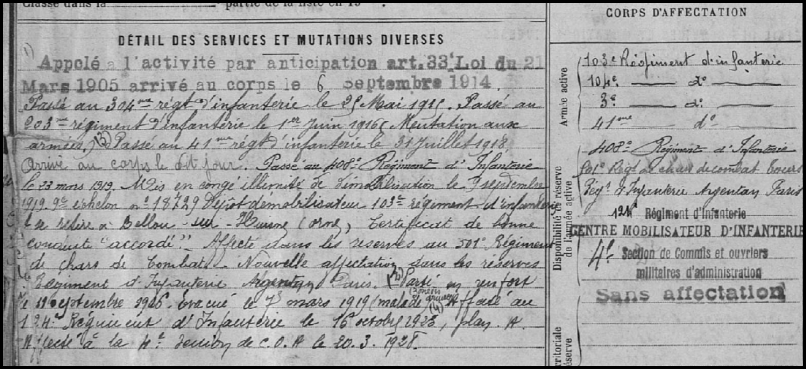 Classé dans la
partie de la liste en 19
DÉTAIL DES SERVICES ET MUTATIONS DIVERSES
Appelé a l'activité par anticipation art.33 Loi du 21
Mars 1905 arrivé au corps le 6 septembre 1914.
Passé au 304me régt d'infanterie le Mai Passé au
203me régiment d'infanterie le 1er Juin 1916 (Mutation aux
armées) Passé au 41me régt d'infanterie le 31 juillet 1918.
Arrivé au corps le dit jour. Passé au 406me Régiment d'Infanterie
le 23 mars 1919. Mis en congé illimité de démobilisation le septembre
1919, échelon n° 18729 Dépôt démobilisateur 103me régiment d'infanterie
se retire à Bellou-sur-Huisne (Orne), Certificat de bonne
conduite "accordé". Affecté dans les réserves au 501e Régiment
de chars de Combats. Nouvelle affectation dans les réserves
Régiment d'Infanterie Argentan Paris. Parti en renfort
le septembre évacué le 7 mars 1919 (malade) Affecté au
124e Régiment d'Infanterie le 16 octobre plan A
Affecté à la 4e Section de C.O.A le 20.3.1928.
CORPS D'AFFECTATION
103e Régiment d'infanterie
104e do
3e do
41me do
406me Régiment d'Infanterie
501e Régt de chars de combat Tours
Régt d'Infanterie Argentan Paris
124e Régiment d'Infanterie
CENTRE MOBILISATEUR D'INFANTERIE
4e Section de Commis et ouvriers
militaires d'administration
Sans affectation
Armée active
Disponibilité et réserve
de l'armée active
territoriale
réserve